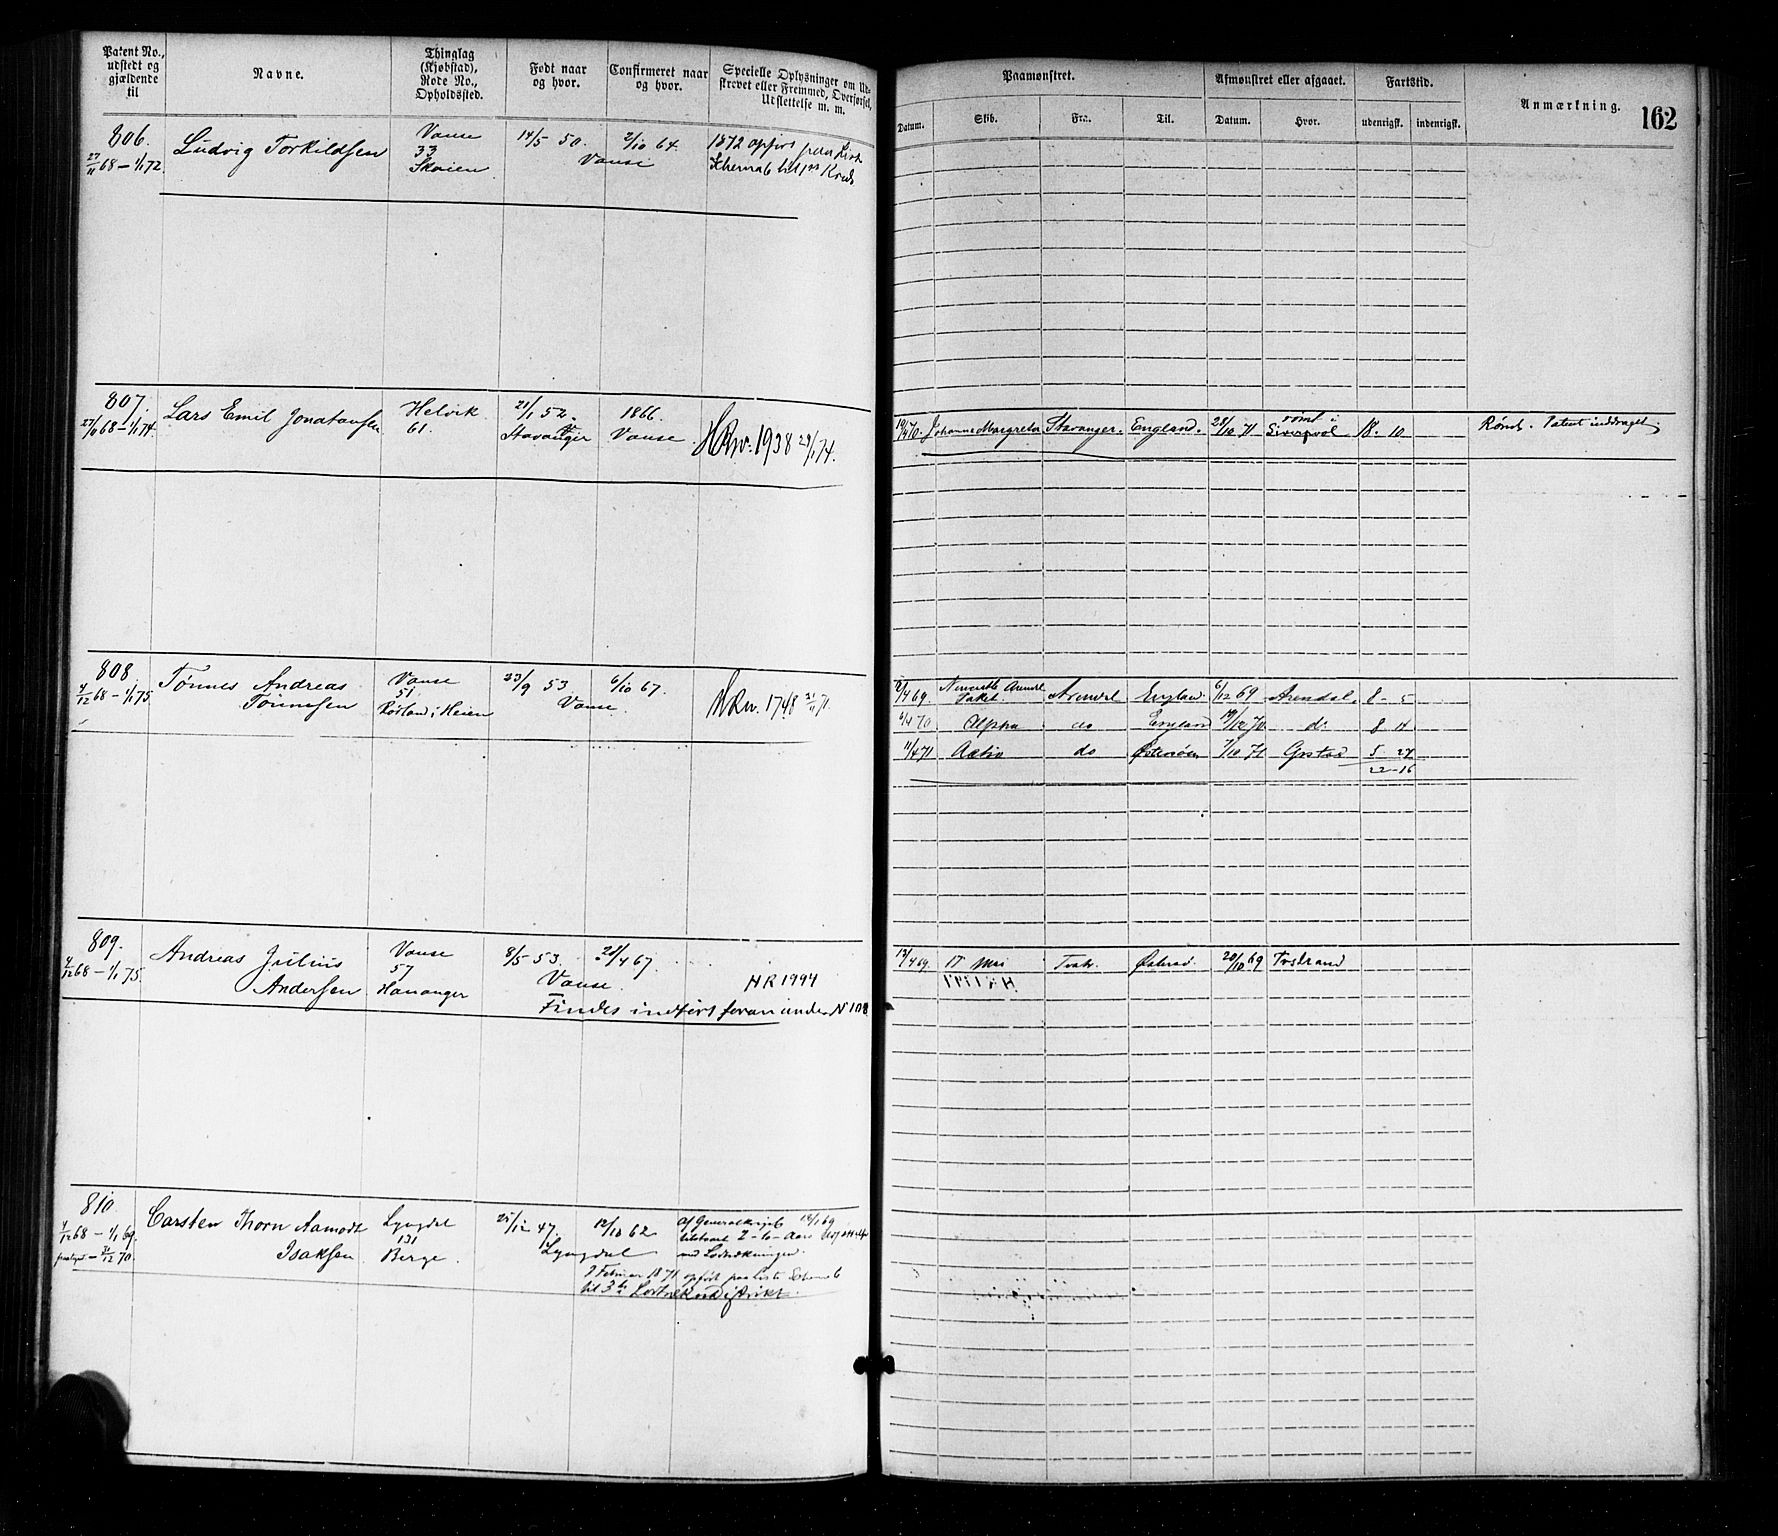 Patent No., udstedt og gjældende til
Navne.
Thinglag (Kjøbstad), Rode No., Opholdssted.
Født naar og hvor.
Confirmeret naar og hvor.
Specielle Oplysninger om Ud-
strevet eller Fremmed, Overførsel,
Udslettelse m. m.
806.
27/11 68 – 1/1 72
Ludvig Torkildsen
Vanse
33
Skeien
14/5 50.
2/10 64.
Vanse
1872 opført paa
Schema 6 til
807.
27/11 68 – 1/1 74.
Lars Emil Jonatansen
Helvik
61.
21/1 52.
Stavanger
1866.
Vanse.
HRno. 1938 29/1 74.
808.
4/12 68 – 1/1 75
Tønnes Andreas
Tønnesen
Vanse
51
i Heien
23/9 53
6/10 67.
Vanse.
HRno. 1748 21/11 71.
809.
4/12 68 – 1/1 75.
Andreas Julius
Andersen
Vanse
57
Hananger
8/5 53.
28/4 67.
Vanse.
HR 1994
Findes indført foran under N 108
810.
4/12 68 – 1/1 69.
– 31/12 70.
Carsten Thorn Aamodt
Isaksen.
Lyngdal
131
Berge.
25/12 47.
12/10 62
Lyngdal
af Generalkrigsk
tilstaaet 2 – to – Aars
ved Lodtrækningen.
Februar 1871 opført paa Liste Schema 6
til 3die
Paamønstret.
Afmønstret eller afgaaet.
Fartstid.
Anmærkning.
162
Datum.
Skib.
Fra.
Til.
Datum.
Hvor.
udenrigsk.
indenrigsk.
19/4 70. Johanne Margreta Stavanger. England. 28/10 71 rømt i Liverpool 18. 10 Rømt. Patent inddraget.
12/4 69. Arendal England 6/12 69 Arendal. 8 – 5
6/4 70 Alpha do England 19/12 70. do 8 14
11/4 71 Activ do 7/10 71 Grstad 5 27
22 – 16
12/4 69. 17 Mai 20/10 69